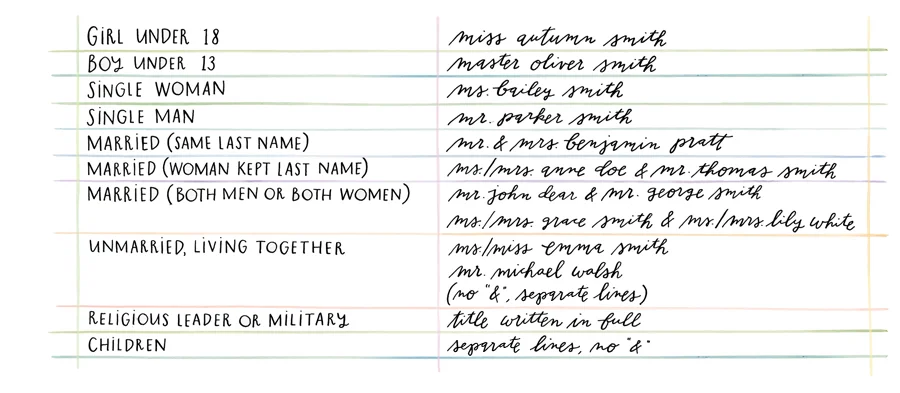 GIRL UNDER 18 miss autumn smith
BOY UNDER 13 master oliver smith
SINGLE WOMAN ms. bailey smith
SINGLE MAN mr. parker smith
MARRIED (SAME LAST NAME) mr. & mrs. benjamin pratt
MARRIED (WOMAN KEPT LAST NAME) ms./mrs. anne doe & mr. thomas smith
MARRIED (BOTH MEN OR BOTH WOMEN) mr. john dear & mr. george smith
ms./mrs. grace smith & ms./mrs. lily white
UNMARRIED, LIVING TOGETHER ms./miss emma smith
mr. michael walsh
(no "&", separate lines)
RELIGIOUS LEADER OR MILITARY title written in full
CHILDREN separate lines, no "&"